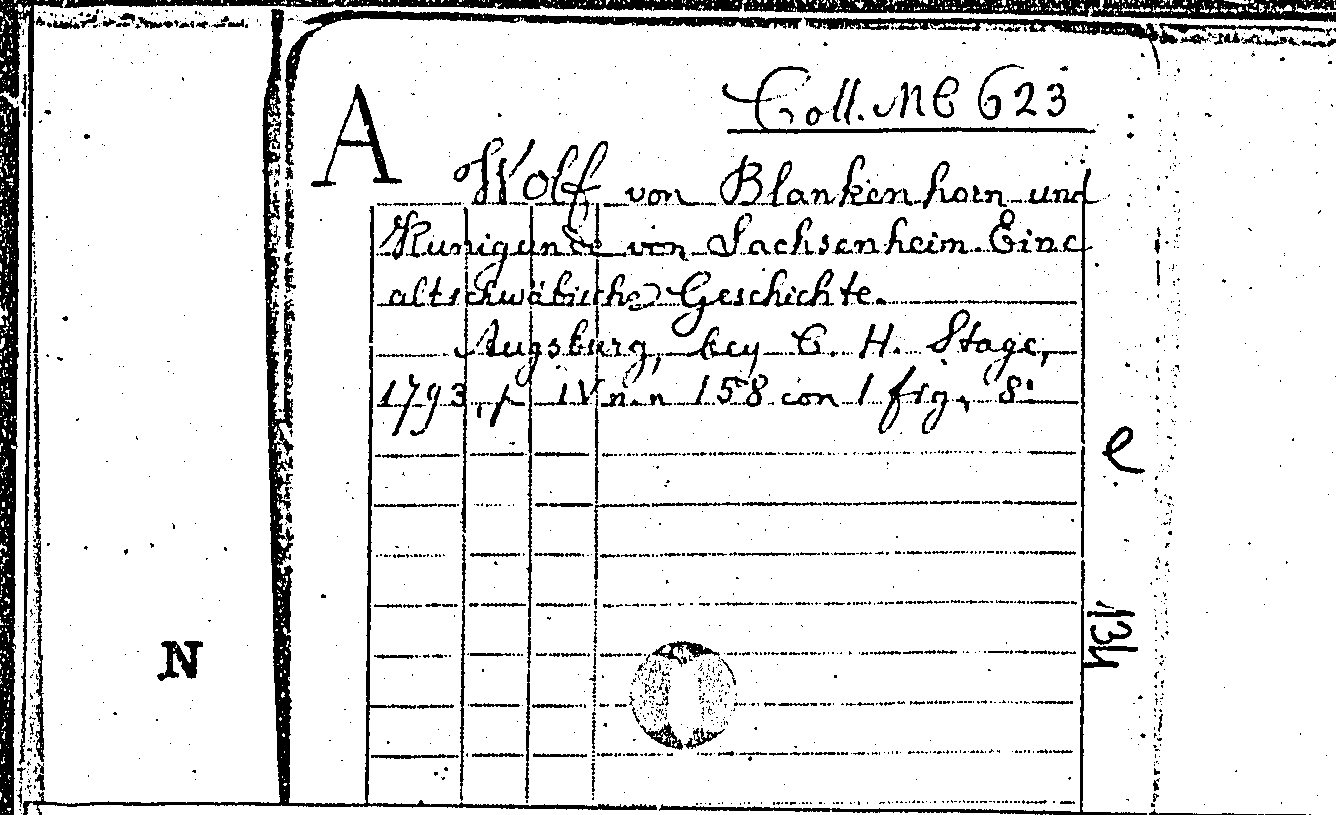 Coll. MC 623
A
Wolf von Blankenhorn und
Kunigunde von Sachsenheim. Eine
altschwäbische Geschichte.
Augsburg, bey C. H. Stage,
1793, p IV n.n 158 con 1 fig, 8°
e
134
N